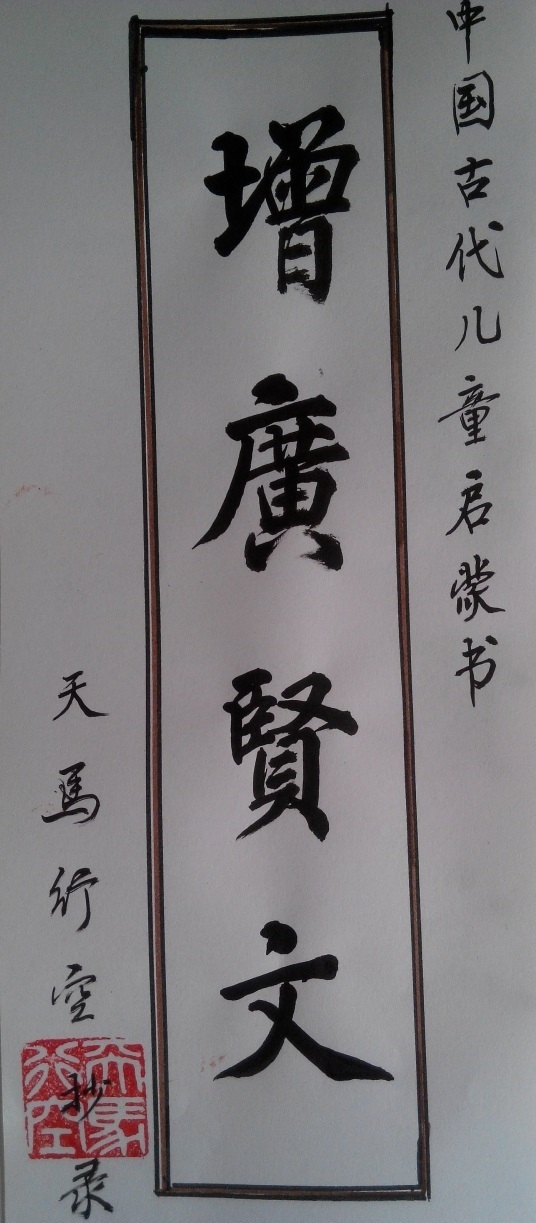 中国古代儿童启蒙书
增廣賢文
天馬行空抄录
天馬行空